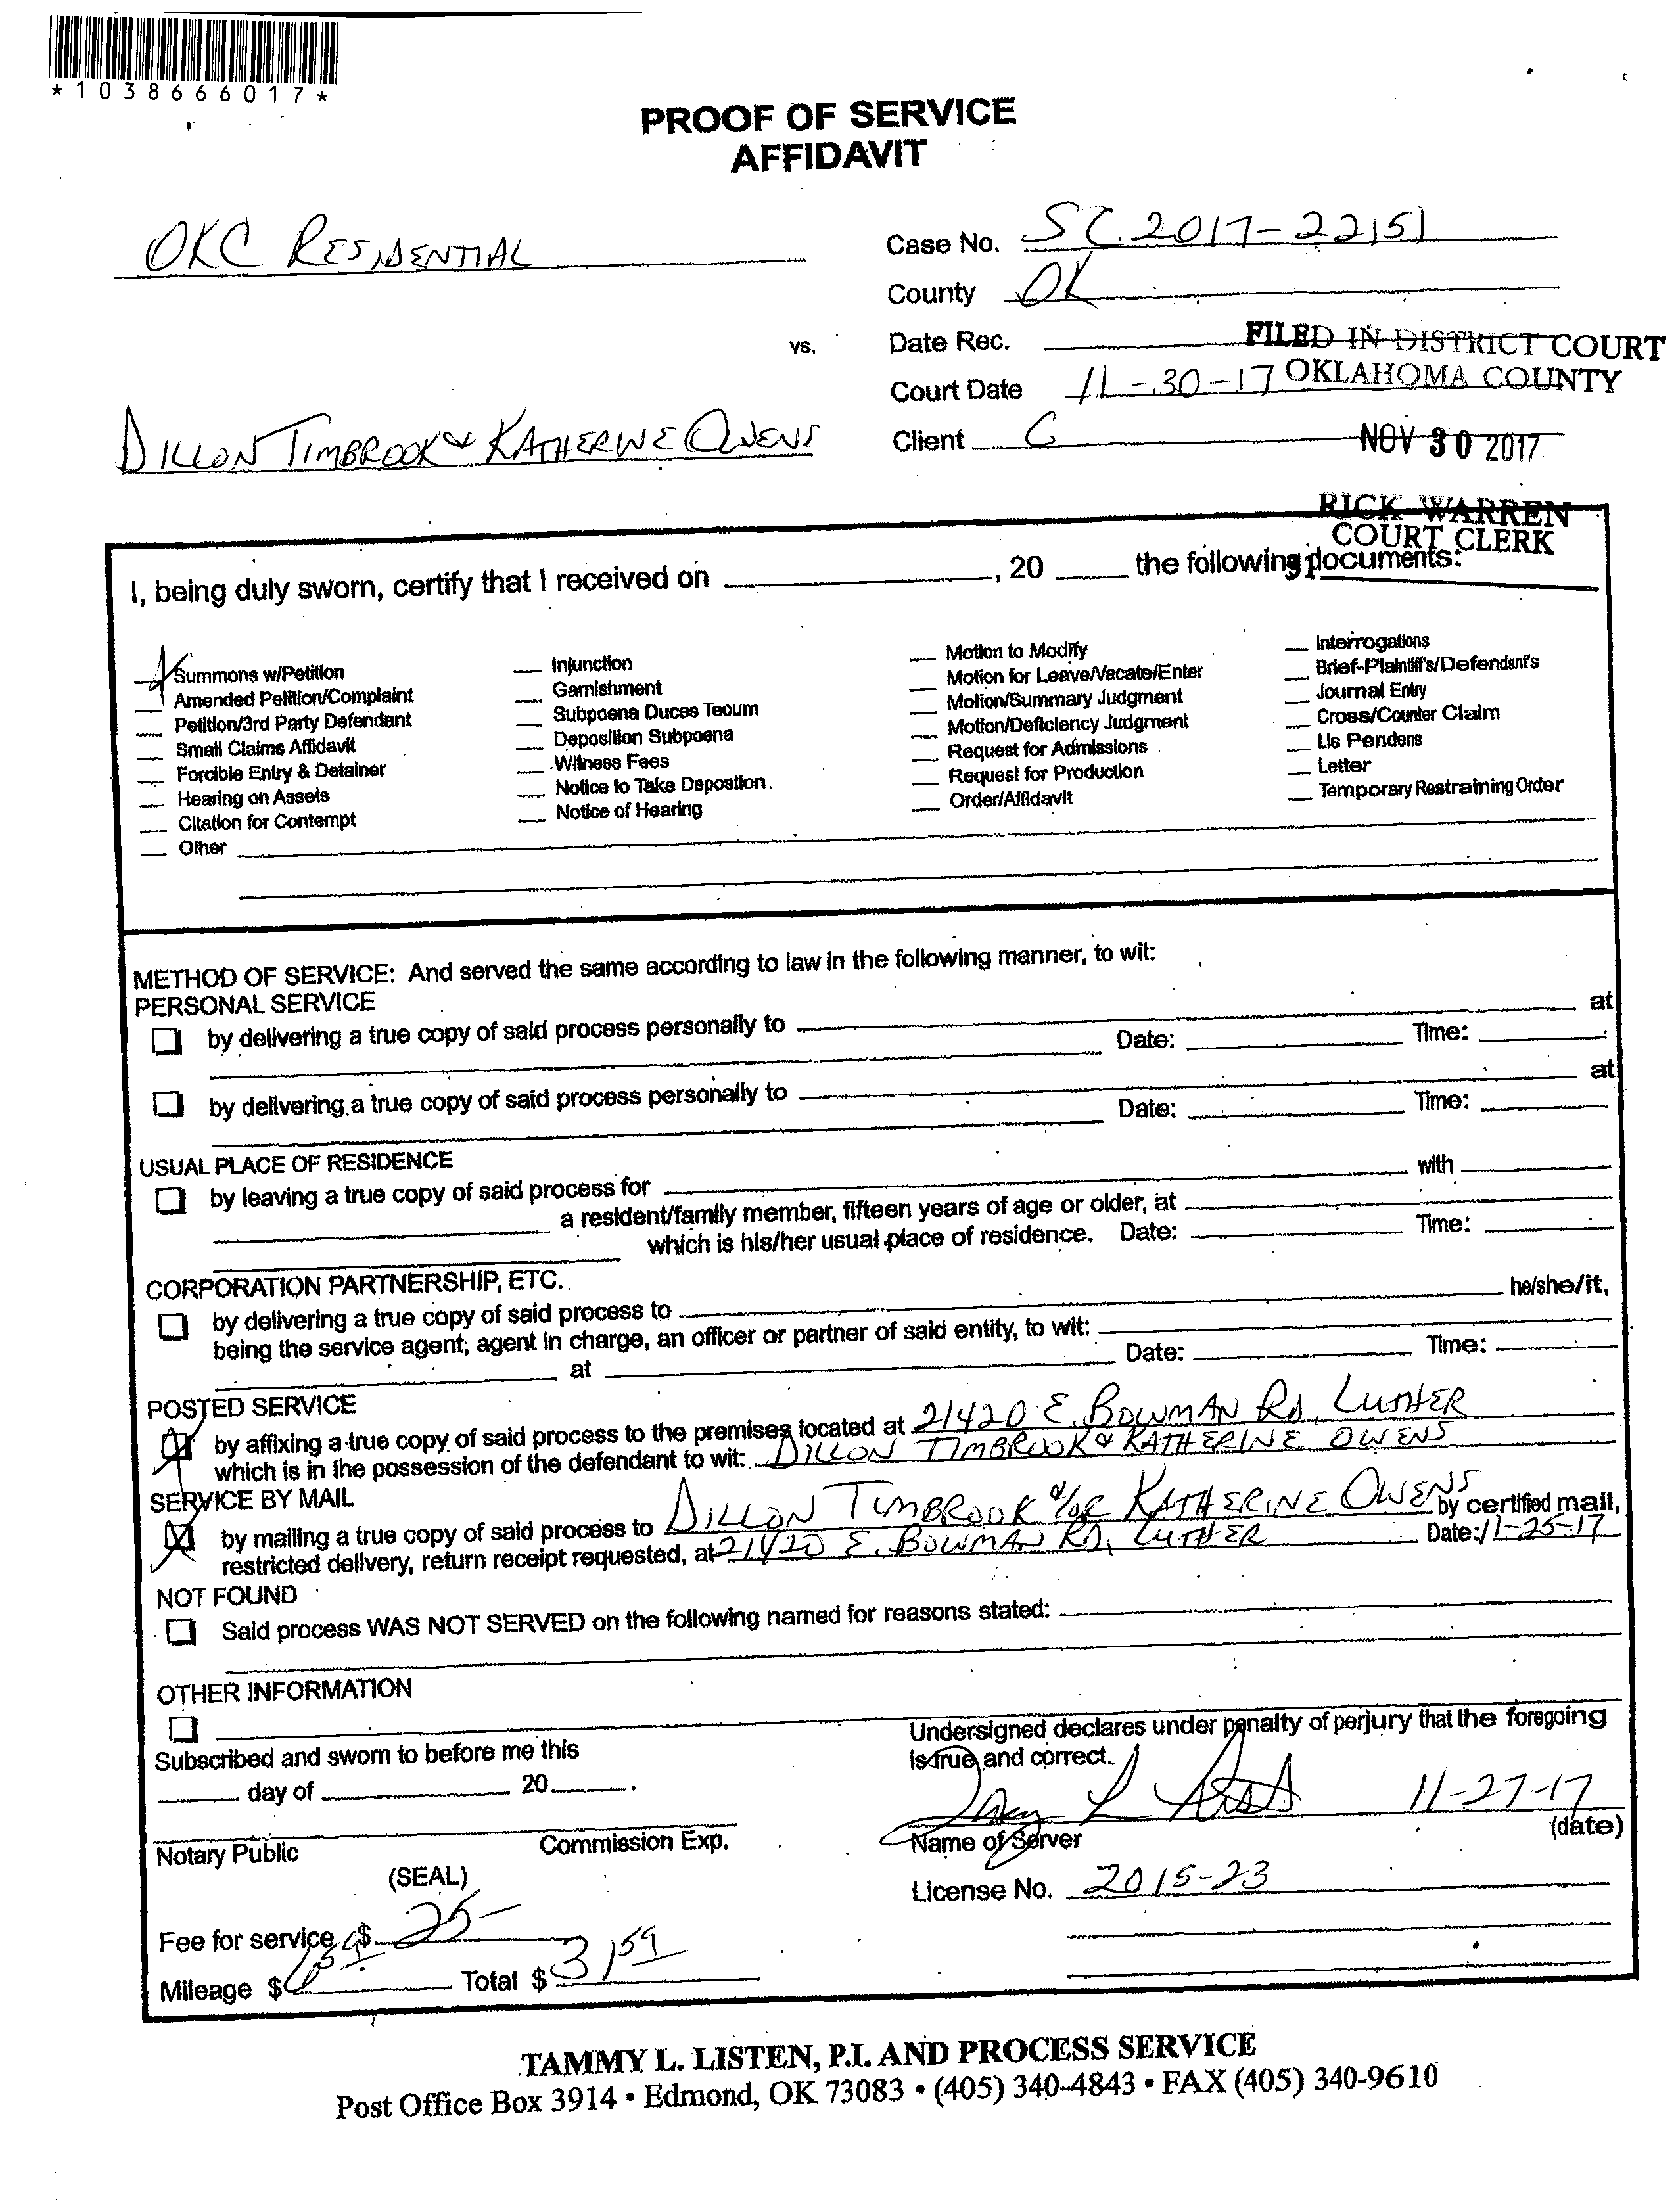 *1038666017*
PROOF OF SERVICE
AFFIDAVIT
OKC RESIDENTIAL
Case No. SC 2017-22151
County OK
vs.
Date Rec.
FILED IN DISTRICT COURT
Court Date 11-30-17
OKLAHOMA COUNTY
DILLON TIMBROOK & KATHERINE OWENS
Client C
NOV 30 2017
RICK WARREN
COURT CLERK
I, being duly sworn, certify that I received on , 20 the following documents:
Summons w/Petition
Amended Petition/Complaint
Petition/3rd Party Defendant
Small Claims Affidavit
Forcible Entry & Detainer
Hearing on Assets
Citation for Contempt
Other
Injunction
Garnishment
Subpoena Duces Tecum
Deposition Subpoena
Witness Fees
Notice to Take Depostion.
Notice of Hearing
Motion to Modify
Motion for Leave/Vacate/Enter
Motion/Summary Judgment
Motion/Deficiency Judgment
Request for Admissions
Request for Production
Order/Affidavit
Interrogations
Brief-Plaintiff's/Defendant's
Journal Entry
Cross/Counter Claim
Lis Pendens
Letter
Temporary Restraining Order
METHOD OF SERVICE: And served the same according to law in the following manner, to wit:
PERSONAL SERVICE
by delivering a true copy of said process personally to at
Date: Time:
by delivering a true copy of said process personally to at
Date: Time:
USUAL PLACE OF RESIDENCE
by leaving a true copy of said process for with
a resident/family member, fifteen years of age or older, at
which is his/her usual place of residence. Date: Time:
CORPORATION PARTNERSHIP, ETC.
by delivering a true copy of said process to he/she/it,
being the service agent; agent in charge, an officer or partner of said entity, to wit:
at Date: Time:
POSTED SERVICE
by affixing a true copy of said process to the premises located at 21420 E. BOWMAN RD, LUTHER
which is in the possession of the defendant to wit: DILLON TIMBROOK & KATHERINE OWENS
SERVICE BY MAIL
by mailing a true copy of said process to DILLON TIMBROOK &/OR KATHERINE OWENS by certified mail,
restricted delivery, return receipt requested, at 21420 E. BOWMAN RD, LUTHER Date: 11-25-17
NOT FOUND
Said process WAS NOT SERVED on the following named for reasons stated:
OTHER INFORMATION
Subscribed and sworn to before me this
day of 20 .
Undersigned declares under penalty of perjury that the foregoing
is true and correct.
11-27-17
Name of Server (date)
Notary Public Commission Exp.
(SEAL)
License No. 2015-23
Fee for service $ 25-
Mileage $ 6 59 Total $ 31 59
TAMMY L. LISTEN, P.I. AND PROCESS SERVICE
Post Office Box 3914 • Edmond, OK 73083 • (405) 340-4843 • FAX (405) 340-9610